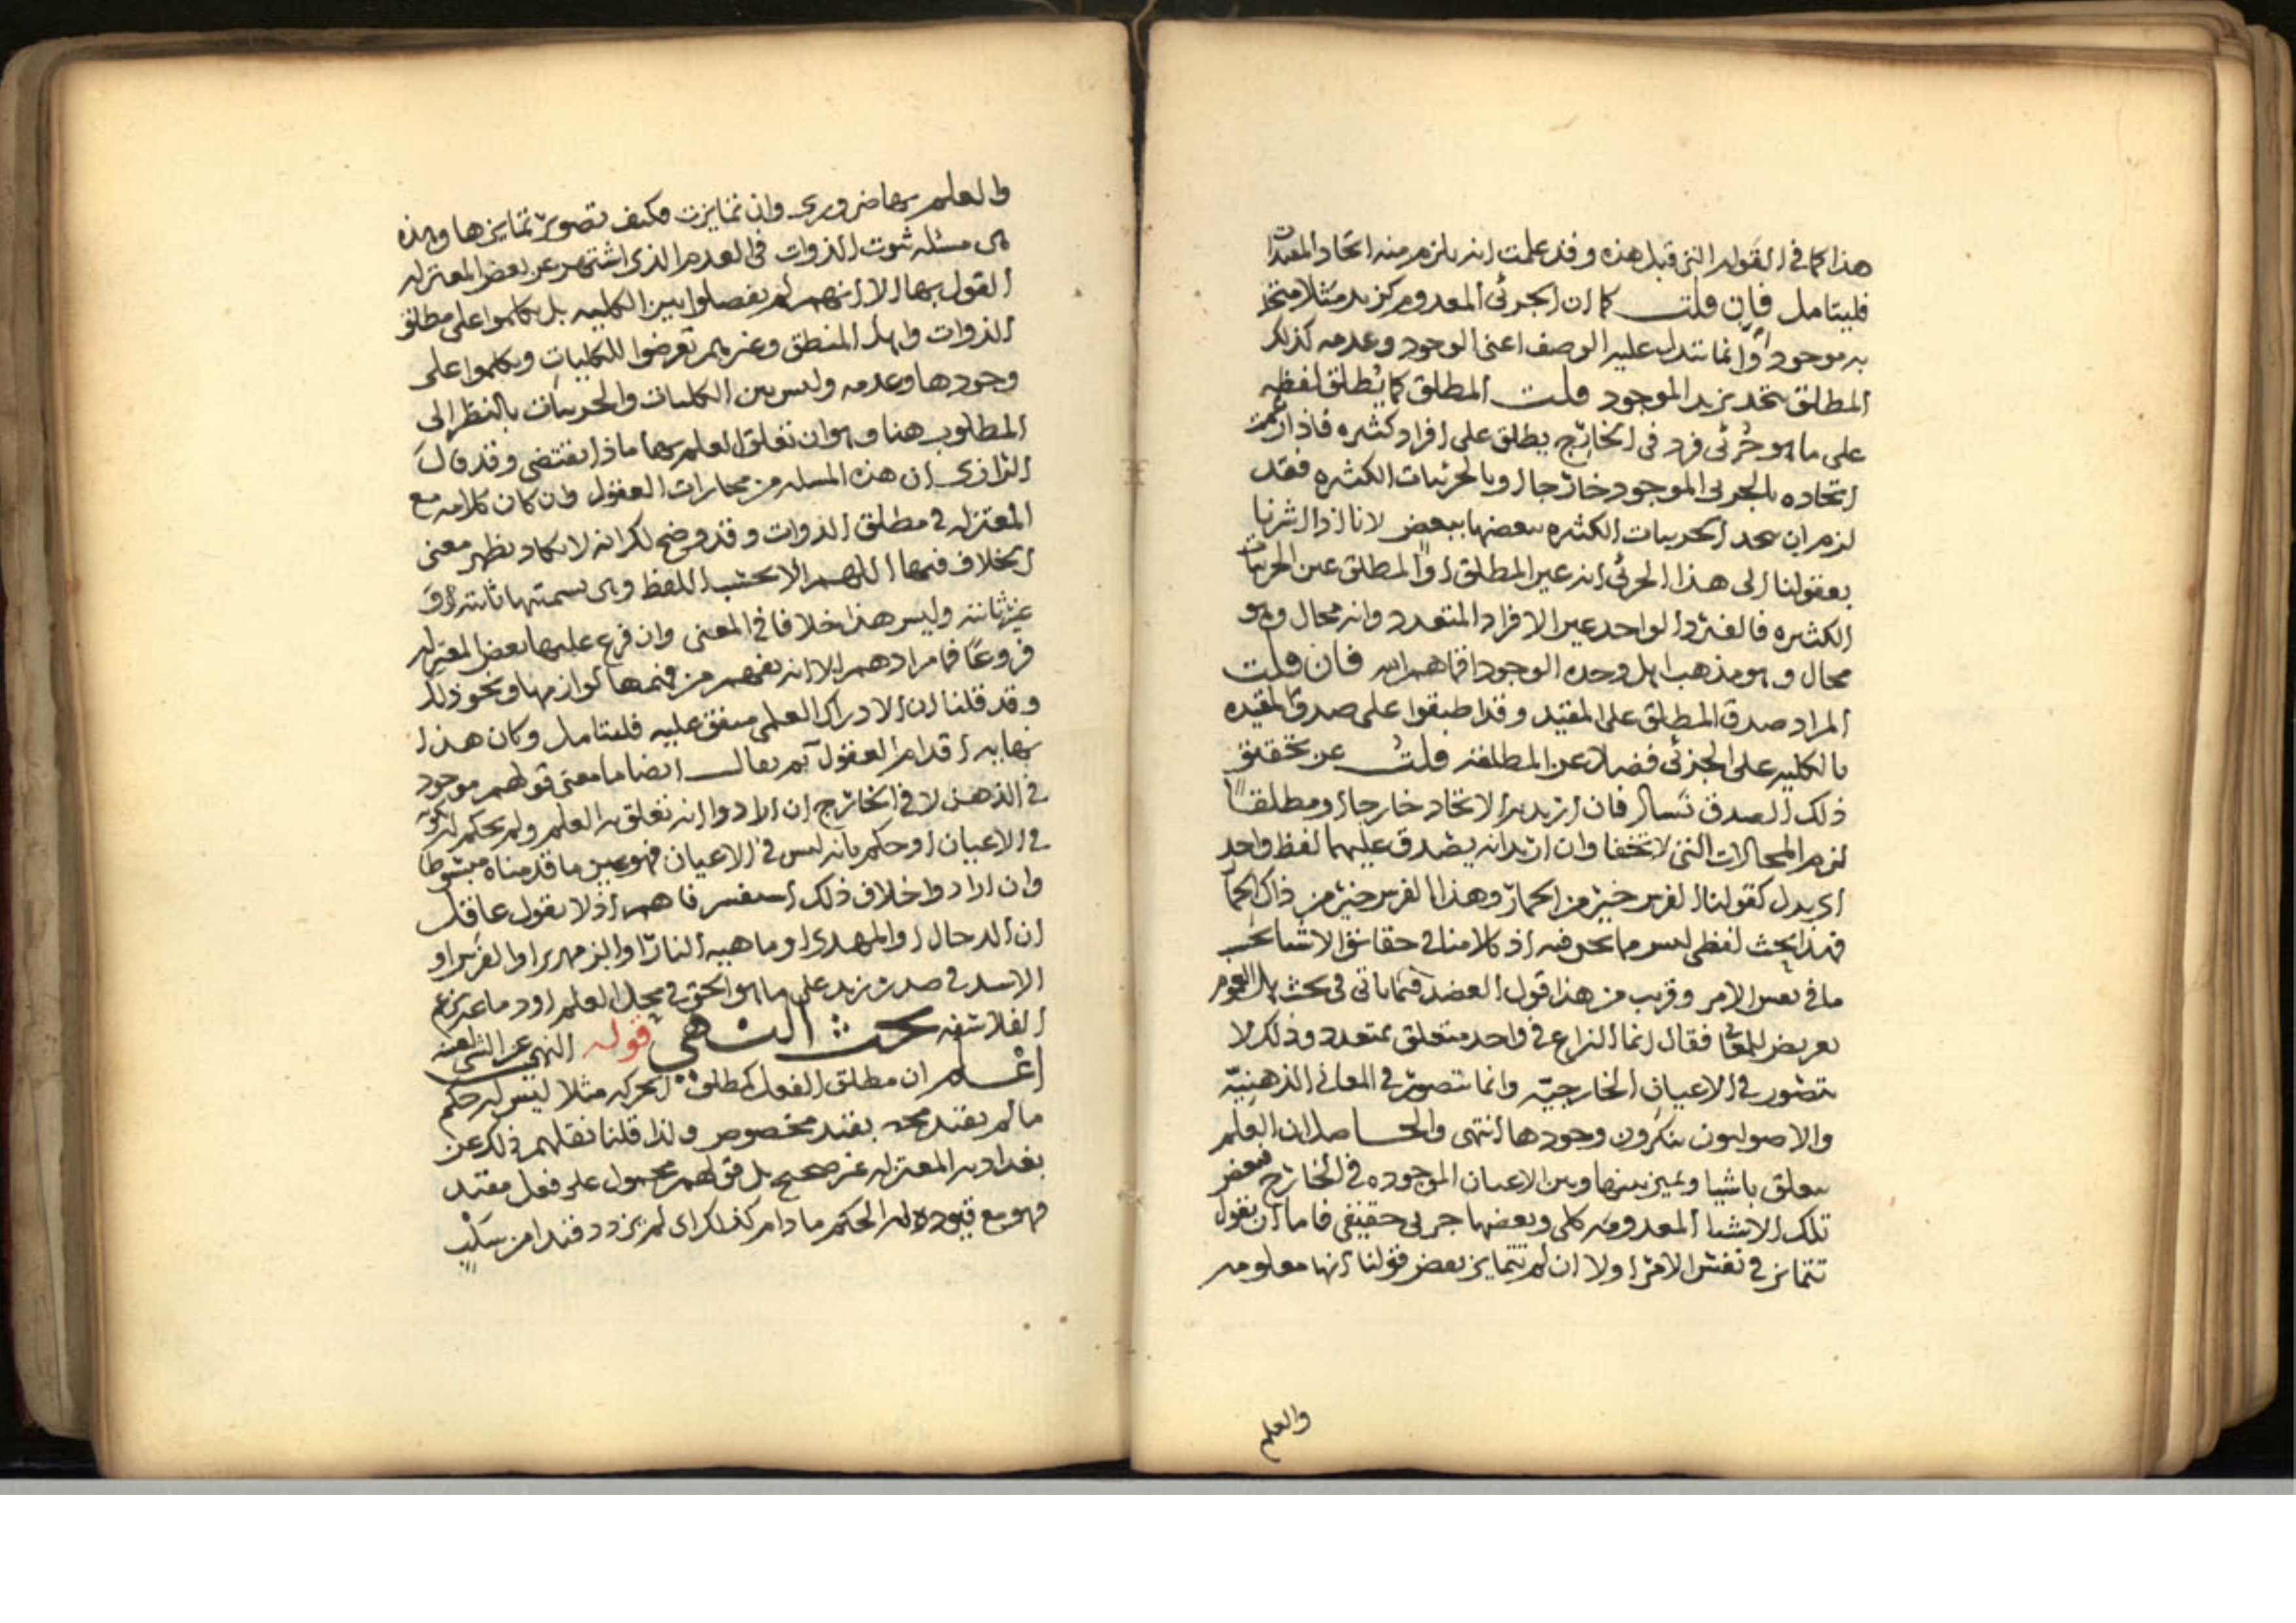 هذا كما في القولة التي قبل هذه وقد علمت انه يلزم منه اتحاد المقيدات
فليتامل فان قلت كما ان الجزئي المعدوم كزيد مثلا متحد
به موجودا وانما تتبدل عليه الوصف اعني الوجود وعدمه كذلك
المطلق يتحد بزيد الموجود قلت المطلق كما يُطلق لفظه
على ما هو جزئي فرد في الخارج يطلق على افراد كثيره فاذا زعمت
اتحاده بالجزئي الموجود خارجا وبالجزئيات الكثيره فقد
لزم ان تتحد الجزيات الكثيره بعضها ببعض لانا اذا اشرنا
بعقولنا الى هذا الجزئي انه عين المطلق او المطلق عين الجزيات
الكثيره فالفرد الواحد عين الافراد المتعدد وانه محال وهو
محال وهو مذهب اهل وحده الوجود اقماهم الله فان قلت
المراد صدق المطلق على المقيد وقد اطبقوا على صدق المقيده
بالكليه على الجزئي فضلا عن المطلقه قلتُ عن تحقيق
ذلك الصدق نسال فان اريد به الاتحاد خارجا او مطلقا
لزم المحالات التي لا تخفا وان اريد انه يصدق عليهما لفظ واحد
اي بدل كقولنا الفرس خير من الحمار وهذا الفرس خير من ذاك الحمار
فهذا بحث لفظي ليس مما نحن فيه اذ كلامنا في حقائق الاشيا بحسب
ما في نفس الامر وقريب من هذا قول العضد فيما ياتي في بحث هل العموم
يعرض للمعاني فقال انما النزاع في واحد متعلق بمتعدد وذلك لا
يتصور في الاعيان الخارجيّه وانما يتصور في المعاني الذهنيّه
والاصوليون ينكرون وجودها انتهى والحاصل ان العلم
يتعلق باشيا ويميز بينها وبين الاعيان الموجوده في الخارج فبعض
تلك الاشيا المعدومه كلي وبعضها جزئي حقيقي فاما ان نقول
تتمايز في نفس الامر اولا ان لم تتمايز بعض قولنا انها معلومه
والعلم
والعلم بها ضروري وان تمايزت فكيف تصوير تمايزها وهذه
هي مسئله ثبوت الذوات في العدم الذي اشتهر عن بعض المعتزله
القول بها الا انهم لم يفصلوا بين الكليه بل تكلموا على مطلق
الذوات واهل المنطق وغيرهم تعرضوا للكليات وتكلموا على
وجودها وعدمه وليس بين الكليات والجزيات بالنظر الى
المطلوب هنا وهو ان تعلق العلم بهما ماذا يقتضي وقد قال
الرازي ان هذه المسله من محارات العقول وان كان كلامه مع
المعتزله في مطلق الذوات وقد وضح لك انه لا يكاد يظهر معنى
الخلاف فيها اللهم الا بحسب اللفظ وهي تسميتها ثابته او
غير ثابته وليس هذا خلافا في المعنى وان فرع عليها بعض المعتزله
فروعًا فما مرادهم الا انه يفهم من فهمها لوازمها ونحو ذلك
وقد قلنا ان الادراك العلمي متفق عليه فليتامل وكان هذا
نهايه اقدام العقول ثم يقال ايضا ما معنى قولهم موجود
في الذهن لا في الخارج ان ارادوا انه تعلق به العلم ولم يحكم له بكونه
في الاعيان او حكم بانه ليس في الاعيان فهو عين ما قدمناه مبسوطا
وان ارادوا خلاف ذلك استفسرناهم اذ لا يقول عاقل
ان الدجال او المهدي او ماهيه النار او الزمهرير او الفرس او
الاسد في صدر زيد على ما هو الحق في محل العلم او دماغه بزعم
الفلاسفه بحث النهي قوله النهي عن الشي لعينه
اعلم ان مطلق الفعل كمطلق الحركه مثلا ليس له حكم
ما لم يقيد بقيد مخصوص ولذا قلنا نقلهم ذلك عن
بغداديه المعتزله غير صحيح بل قولهم محمول على فعل مقيد
فهو مع قيوده له الحكم ما دام كذلك اي لم يزدد قيدا من سلب